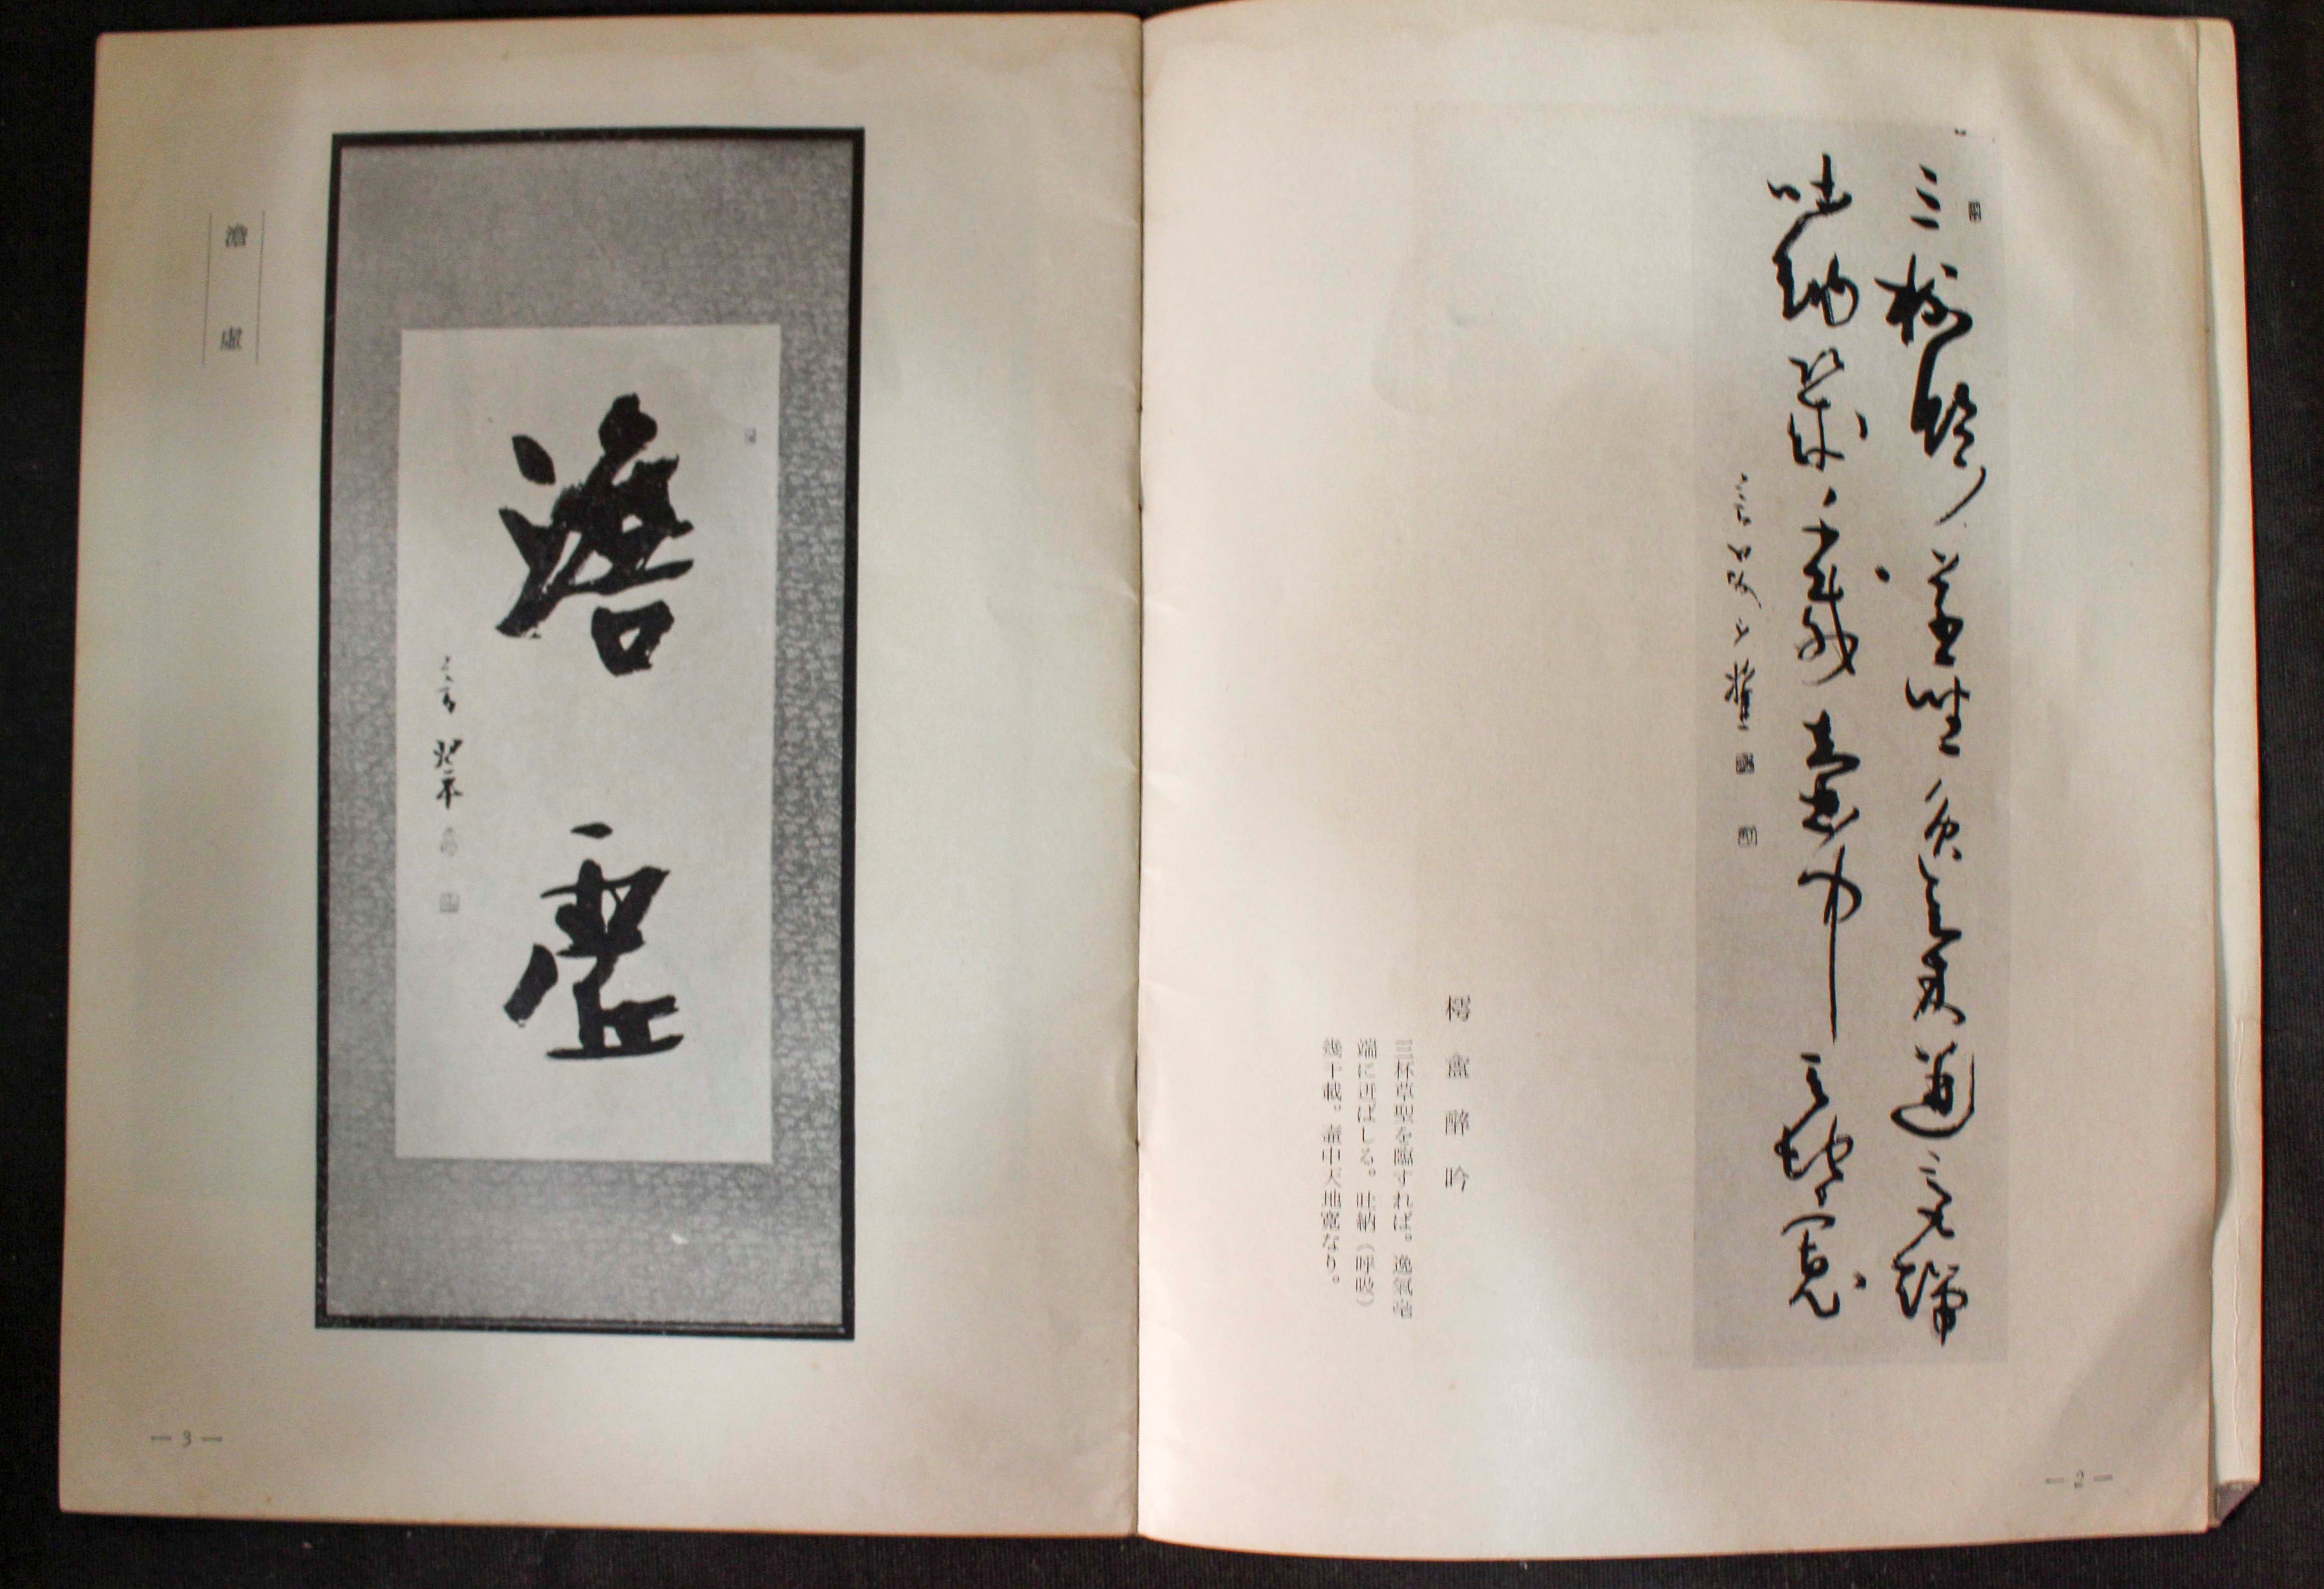 三杯臨草聖逸氣迸毫端
吐納幾千載壺中天地寬
樗盦醉吟
三杯草聖を臨すれば。逸氣毫
端に迸ばしる。吐納（呼吸）
幾千載。壺中天地寬なり。
— 2 —
澹虛
澹虛
— 3 —